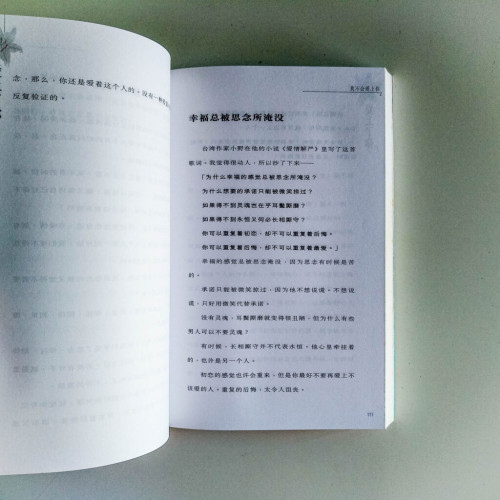 念，那么，你还是爱着这个人的，没有一种
反复验证的。
幸福总被思念所淹没
台湾作家小野在他的小说《爱情解严》里写了这首
歌词。我觉得很动人，所以抄了下来——
「为什么幸福的感觉总被思念所淹没？
为什么想要的承诺只能被微笑掠过？
如果得不到灵魂也在乎耳鬓厮磨？
如果得不到永恒又何必长相厮守？
你可以重复着初恋，却不可以重复着后悔。
你可以重复着后悔，却不可以重复着最爱。」
幸福的感觉总被思念淹没，因为思念有时候是苦
的。
承诺只能被微笑掠过，因为他不想说谎。不想说
谎，只好用微笑代替承诺。
没有灵魂，耳鬓厮磨就变得很丑陋，但为什么有些
男人可以不要灵魂？
有时候，长相厮守并不代表永恒。他心里牵挂着
的，也许是另一个人。
初恋的感觉也许会重来，但是你最好不要再爱上不
该爱的人。重复的后悔，太令人沮丧。